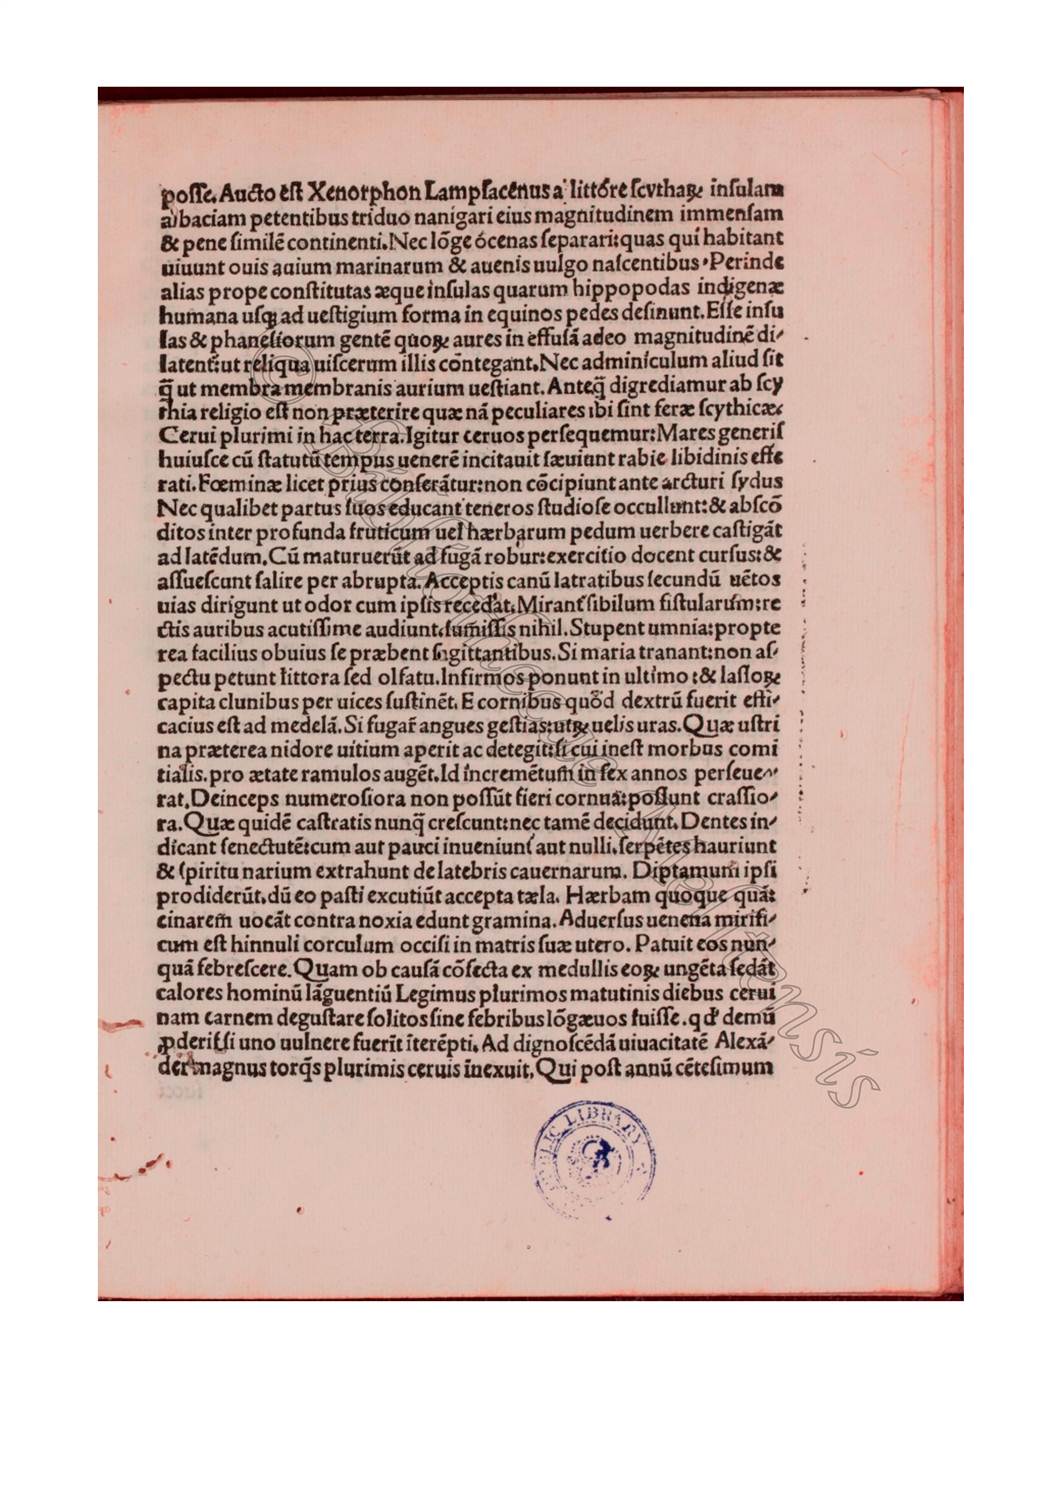 posse. Aucto est Xenorphon Lampsacenus a littore scythaꝝ insulam
abaciam petentibus triduo nauigari eius magnitudinem immensam
& pene similē continenti. Nec lōge ócenas separari: quas qui habitant
uiuunt ouis auium marinarum & auenis uulgo nascentibus. Perinde
alias prope constitutas æque insulas quarum hippopodas indigenæ
humana usqꝫ ad uestigium forma in equinos pedes desinunt. Esse insu
las & phanesiorum gentē quoꝝ aures in effusā adeo magnitudinē di/
latent: ut reliqua uiscerum illis cōtegant. Nec adminiculum aliud sit
q̄ ut membra membranis aurium uestiant. Anteq̄ digrediamur ab scy
thia religio est non præterire quæ nā peculiares ibi sint feræ scythicæ.
Cerui plurimi in hac terra. Igitur ceruos persequemur: Mares generis
huiusce cū statutū tempus uenerē incitauit sæuiunt rabie libidinis effe
rati. Fœminæ licet prius conferātur: non cōcipiunt ante arcturi sydus
Nec qualibet partus suos educant teneros studiose occullunt: & abscō
ditos inter profunda fruticum uel hærbarum pedum uerbere castigāt
ad latēdum. Cū maturuerūt ad fugā robur: exercitio docent cursus: &
assuescunt salire per abrupta. Acceptis canū latratibus secundū uētos
uias dirigunt ut odor cum ipsis recedat. Mirant sibilum fistularum: re
ctis auribus acutissime audiunt. sumissis nihil. Stupent umnia: propte
rea facilius obuius se præbent sagittantibus. Si maria tranant: non as/
pectu petunt littora sed olfatu. Infirmos ponunt in ultimo: & lassoꝝ
capita clunibus per uices sustinēt. E cornibus quōd dextrū fuerit effi/
cacius est ad medelā. Si fugar̄ angues gestias: utꝝ uelis uras. Quæ ustri
na præterea nidore uitium aperit ac detegit: si cui inest morbus comi
tialis. pro ætate ramulos augēt. Id incremētum in sex annos perseue/
rat. Deinceps numerosiora non possūt fieri cornua: possunt crassio/
ra. Quæ quidē castratis nunq̄ crescunt: nec tamē decidunt. Dentes in/
dicant senectutē: cum aut pauci inueniunt aut nulli. serpētes hauriunt
& spiritu narium extrahunt de latebris cauernarum. Diptamum ipsi
prodiderūt. dū eo pasti excutiūt accepta tæla. Hærbam quoque quā:
cinarem uocāt contra noxia edunt gramina. Aduersus uenena mirifi/
cum est hinnuli corculum occisi in matris suæ utero. Patuit eos nun/
quā febrescere. Quam ob causā cōfecta ex medullis eoꝝ ungēta sedāt
calores hominū lāguentiū Legimus plurimos matutinis diebus cerui
nam carnem degustare solitos sine febribus lōgæuos fuisse. qd' demū
ꝓderit si uno uulnere fuerīt īterēpti. Ad dignoscēdā uiuacitatē Alexā/
der magnus torq̄s plurimis ceruis inexuit. Qui post annū cētesimum
PUBLIC LIBRARY
© Bibliotheca Melitensis